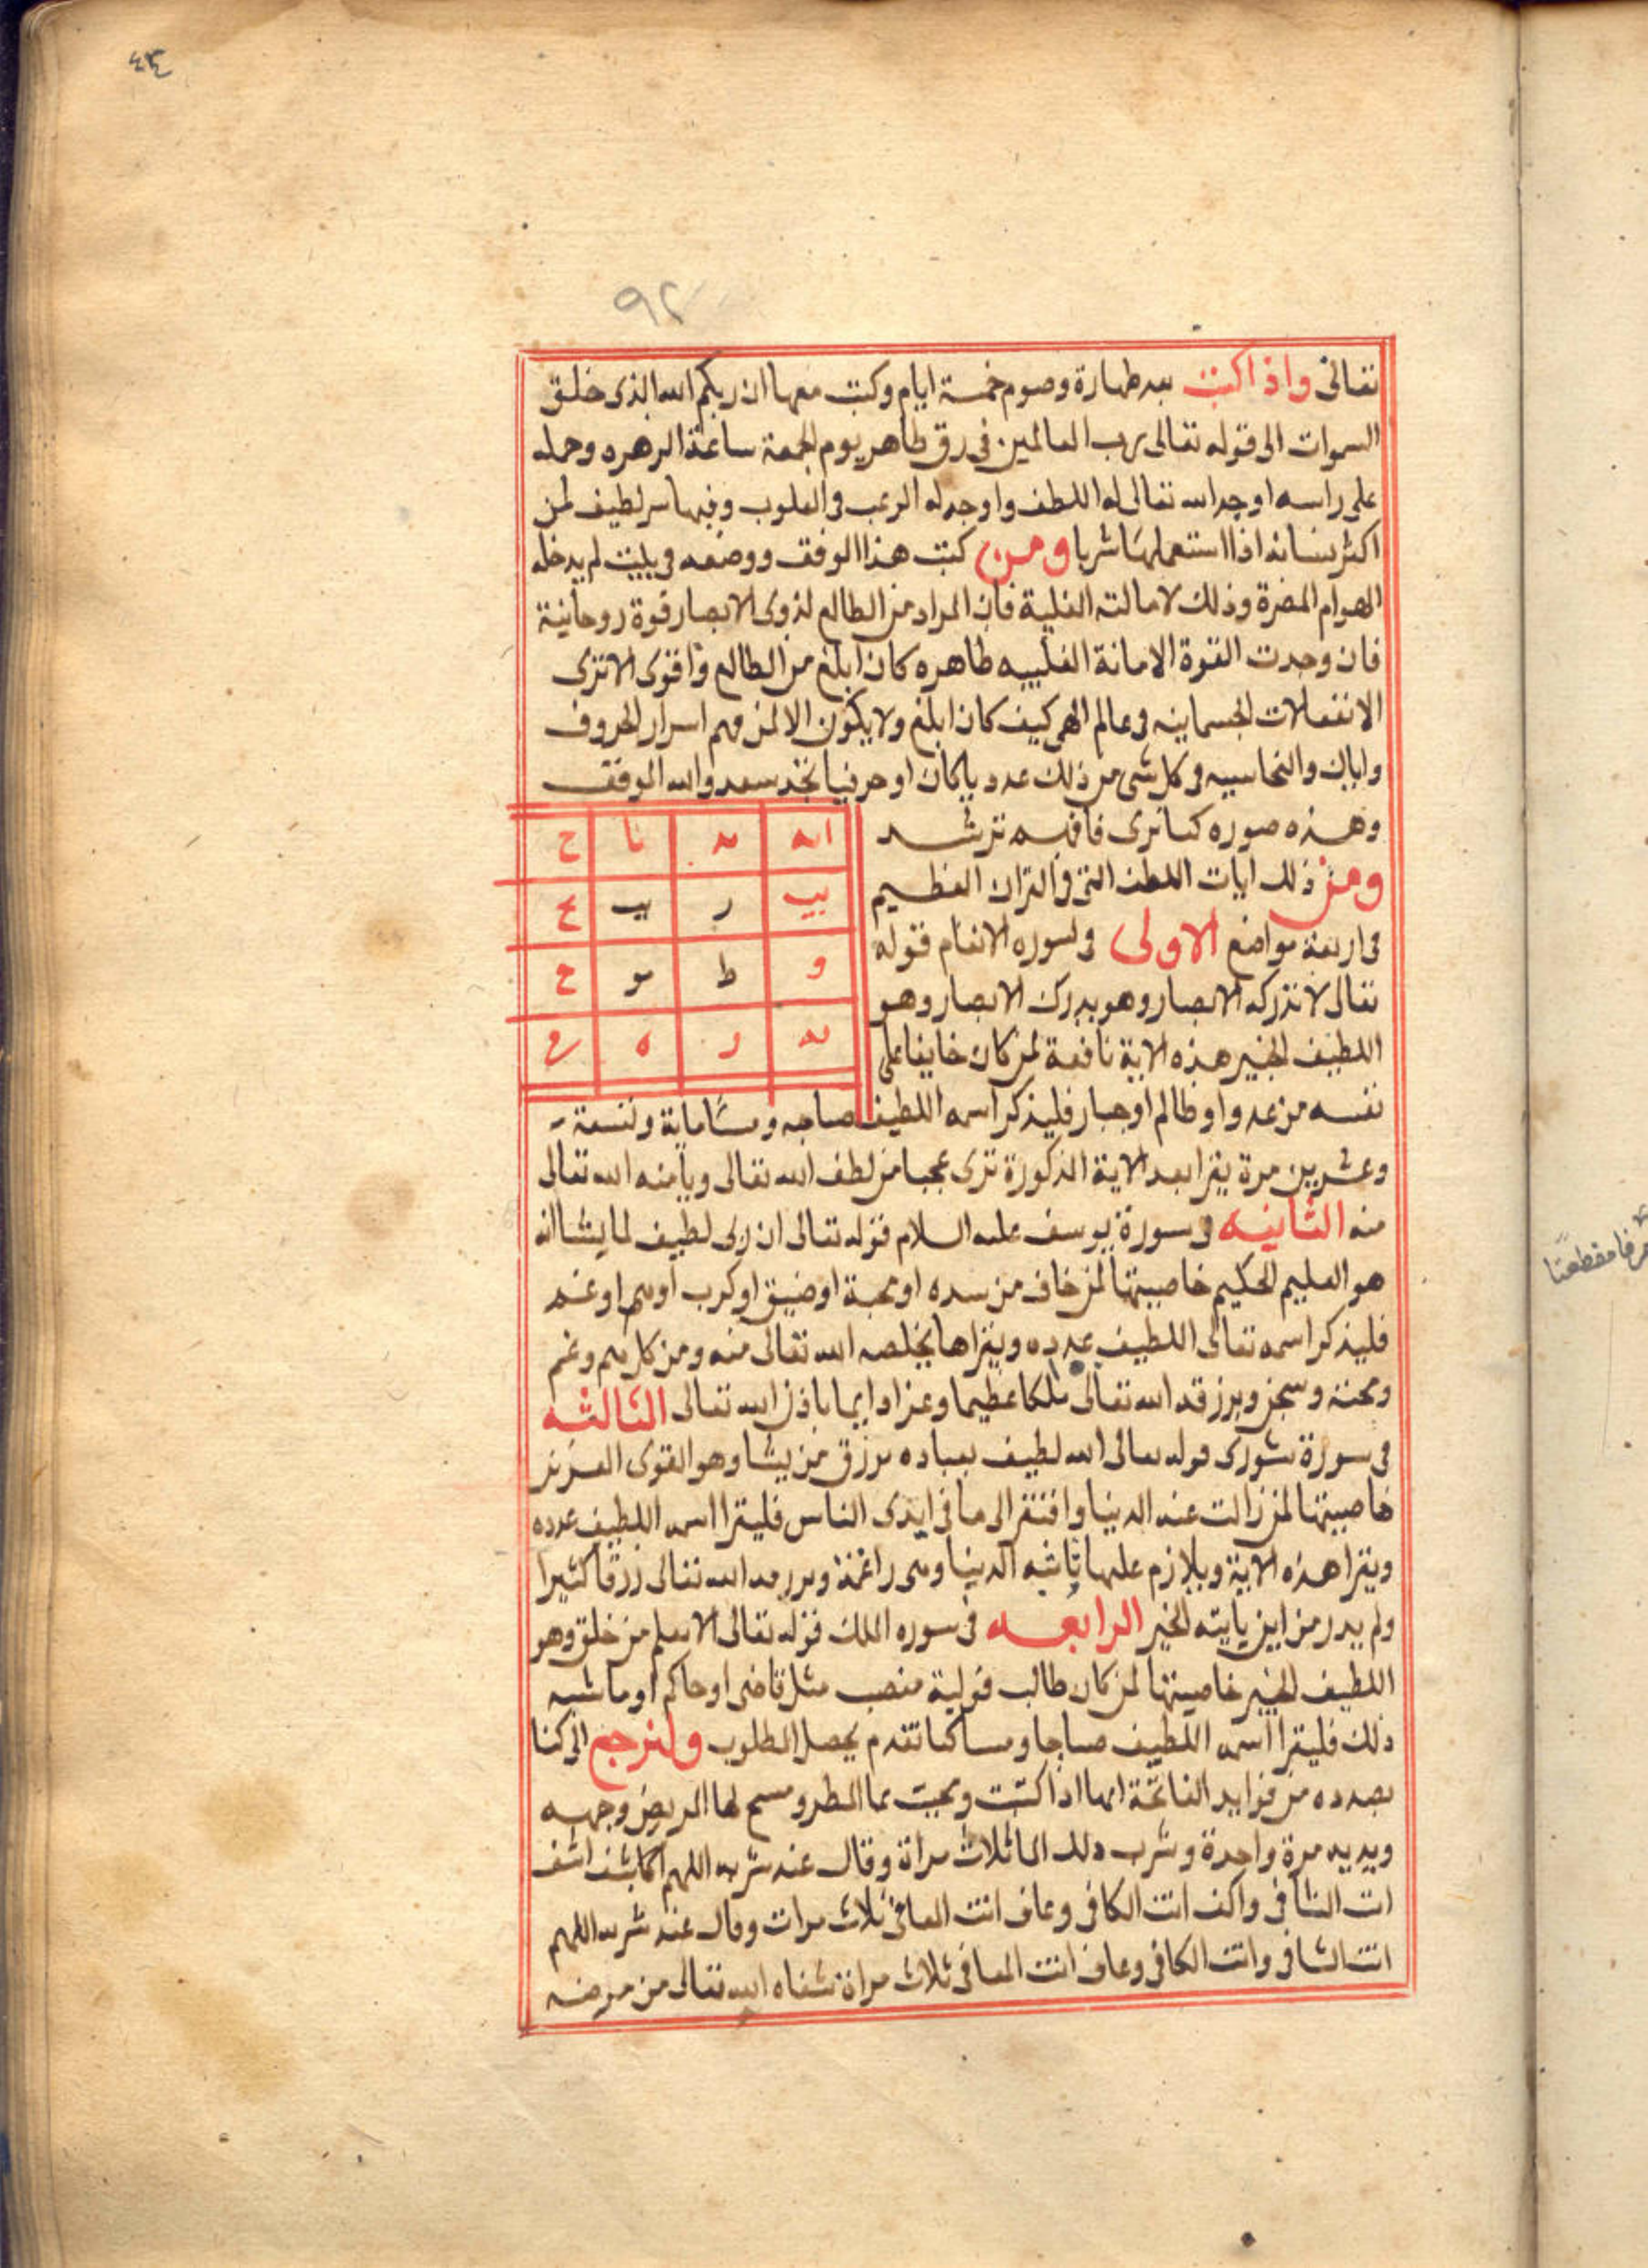 ٤٣
٩٢
تعالى واذا كتبت بعد طهارة وصوم خمسة ايام وكتب معها ان ربكم الله الذى خلق
السموات الى قوله تعالى رب العالمين فى رق طاهر يوم الجمعة ساعة الزهره وحمله
على راسه اوجد الله تعالى له اللطف واوجد له الرعب فى القلوب وفيها سر لطيف لمن
اكثر نسيانه اذا استعملها شربا ومن كتب هذا الوفق ووضعه فى بيت لم يدخله
الهوام المضرة وذلك لامالته القلبية فان المراد من الطالع لذوى الابصار قوة روحانية
فان وجدت القوة الامانة القلبيه طاهره كان ابلغ من الطالع واقوى الا ترى
الانفعالات الجسمانيه فى عالم كيف كان ابلغ ولا يكون الا لمن فهم اسرار الحروف
واياك والنحاسيه فى كل شى من ذلك عدديا كان او حرفيا تجد سعد والله الموفق
وهذه صوره كما ترى فافهم ترشد
ا له د نا ح
يب ر يب ع
و ط مو ح
له ر ه
ومن ذلك ايات اللطف التى فى القران العظيم
فى اربعة مواضع الاولى فى سوره الانعام قوله
تعالى لا تدركه الابصار وهو يدرك الابصار وهو
اللطيف الخبير هذه الاية نافعة لمن كان خايفا على
نفسه من عدو او ظالم او جبار فليذكر اسمه اللطيف صباحه ومسا ماية وتسعة
وعشرين مرة يقرا بعد الاية المذكورة ترى عجبا من لطف الله تعالى ويامنه الله تعالى
منه الثانيه فى سورة يوسف عليه السلام قوله تعالى ان ربى لطيف لما يشا انه
هو العليم الحكيم خاصيتها لمن خاف من شده او محبة او ضيق او كرب او هم او غم
فليذكر اسمه تعالى اللطيف عدده ويقراها يخلصه الله تعالى منه ومن كل هم وغم
ومحنة وسجن ويرزقه الله تعالى ملكا عظيما وعزا دايما باذن الله تعالى الثالثه
فى سورة شورى قوله تعالى الله لطيف بعباده يرزق من يشا وهو القوى العزيز
خاصيتها لمن زالت عنه الدنيا وافتقر الى ما فى ايدى الناس فليقرا اسمه اللطيف عدده
ويقرا هذه الاية ويلازم عليها تاتيه الدنيا وهى راغمة ويرزقه الله تعالى رزقا كثيرا
ولم يدر من اين ياتيه الخير الرابعه فى سوره الملك قوله تعالى الا يعلم من خلق وهو
اللطيف الخبير خاصيتها لمن كان طالب تولية منصب مثل قاضى او حاكم او ما شبه
ذلك فليقرا اسمه اللطيف صباحا ومسا كما تقدم يحصل المطلوب ولنرجع الى كنا
بصدده من فوايد الفاتحة انها اذا كتبت ومحيت بما المطر ومسح بها المريض وجهه
ويديه مرة واحدة وشرب ذلك الما ثلاث مراة وقال عند شربه اللهم اشف
انت الشافى واكف انت الكافى وعاف انت المعافى ثلاث مرات وقال عند شربه اللهم
انت الشافى وانت الكافى وعاف انت المعافى ثلاث مراة شفاه الله تعالى من مرضه